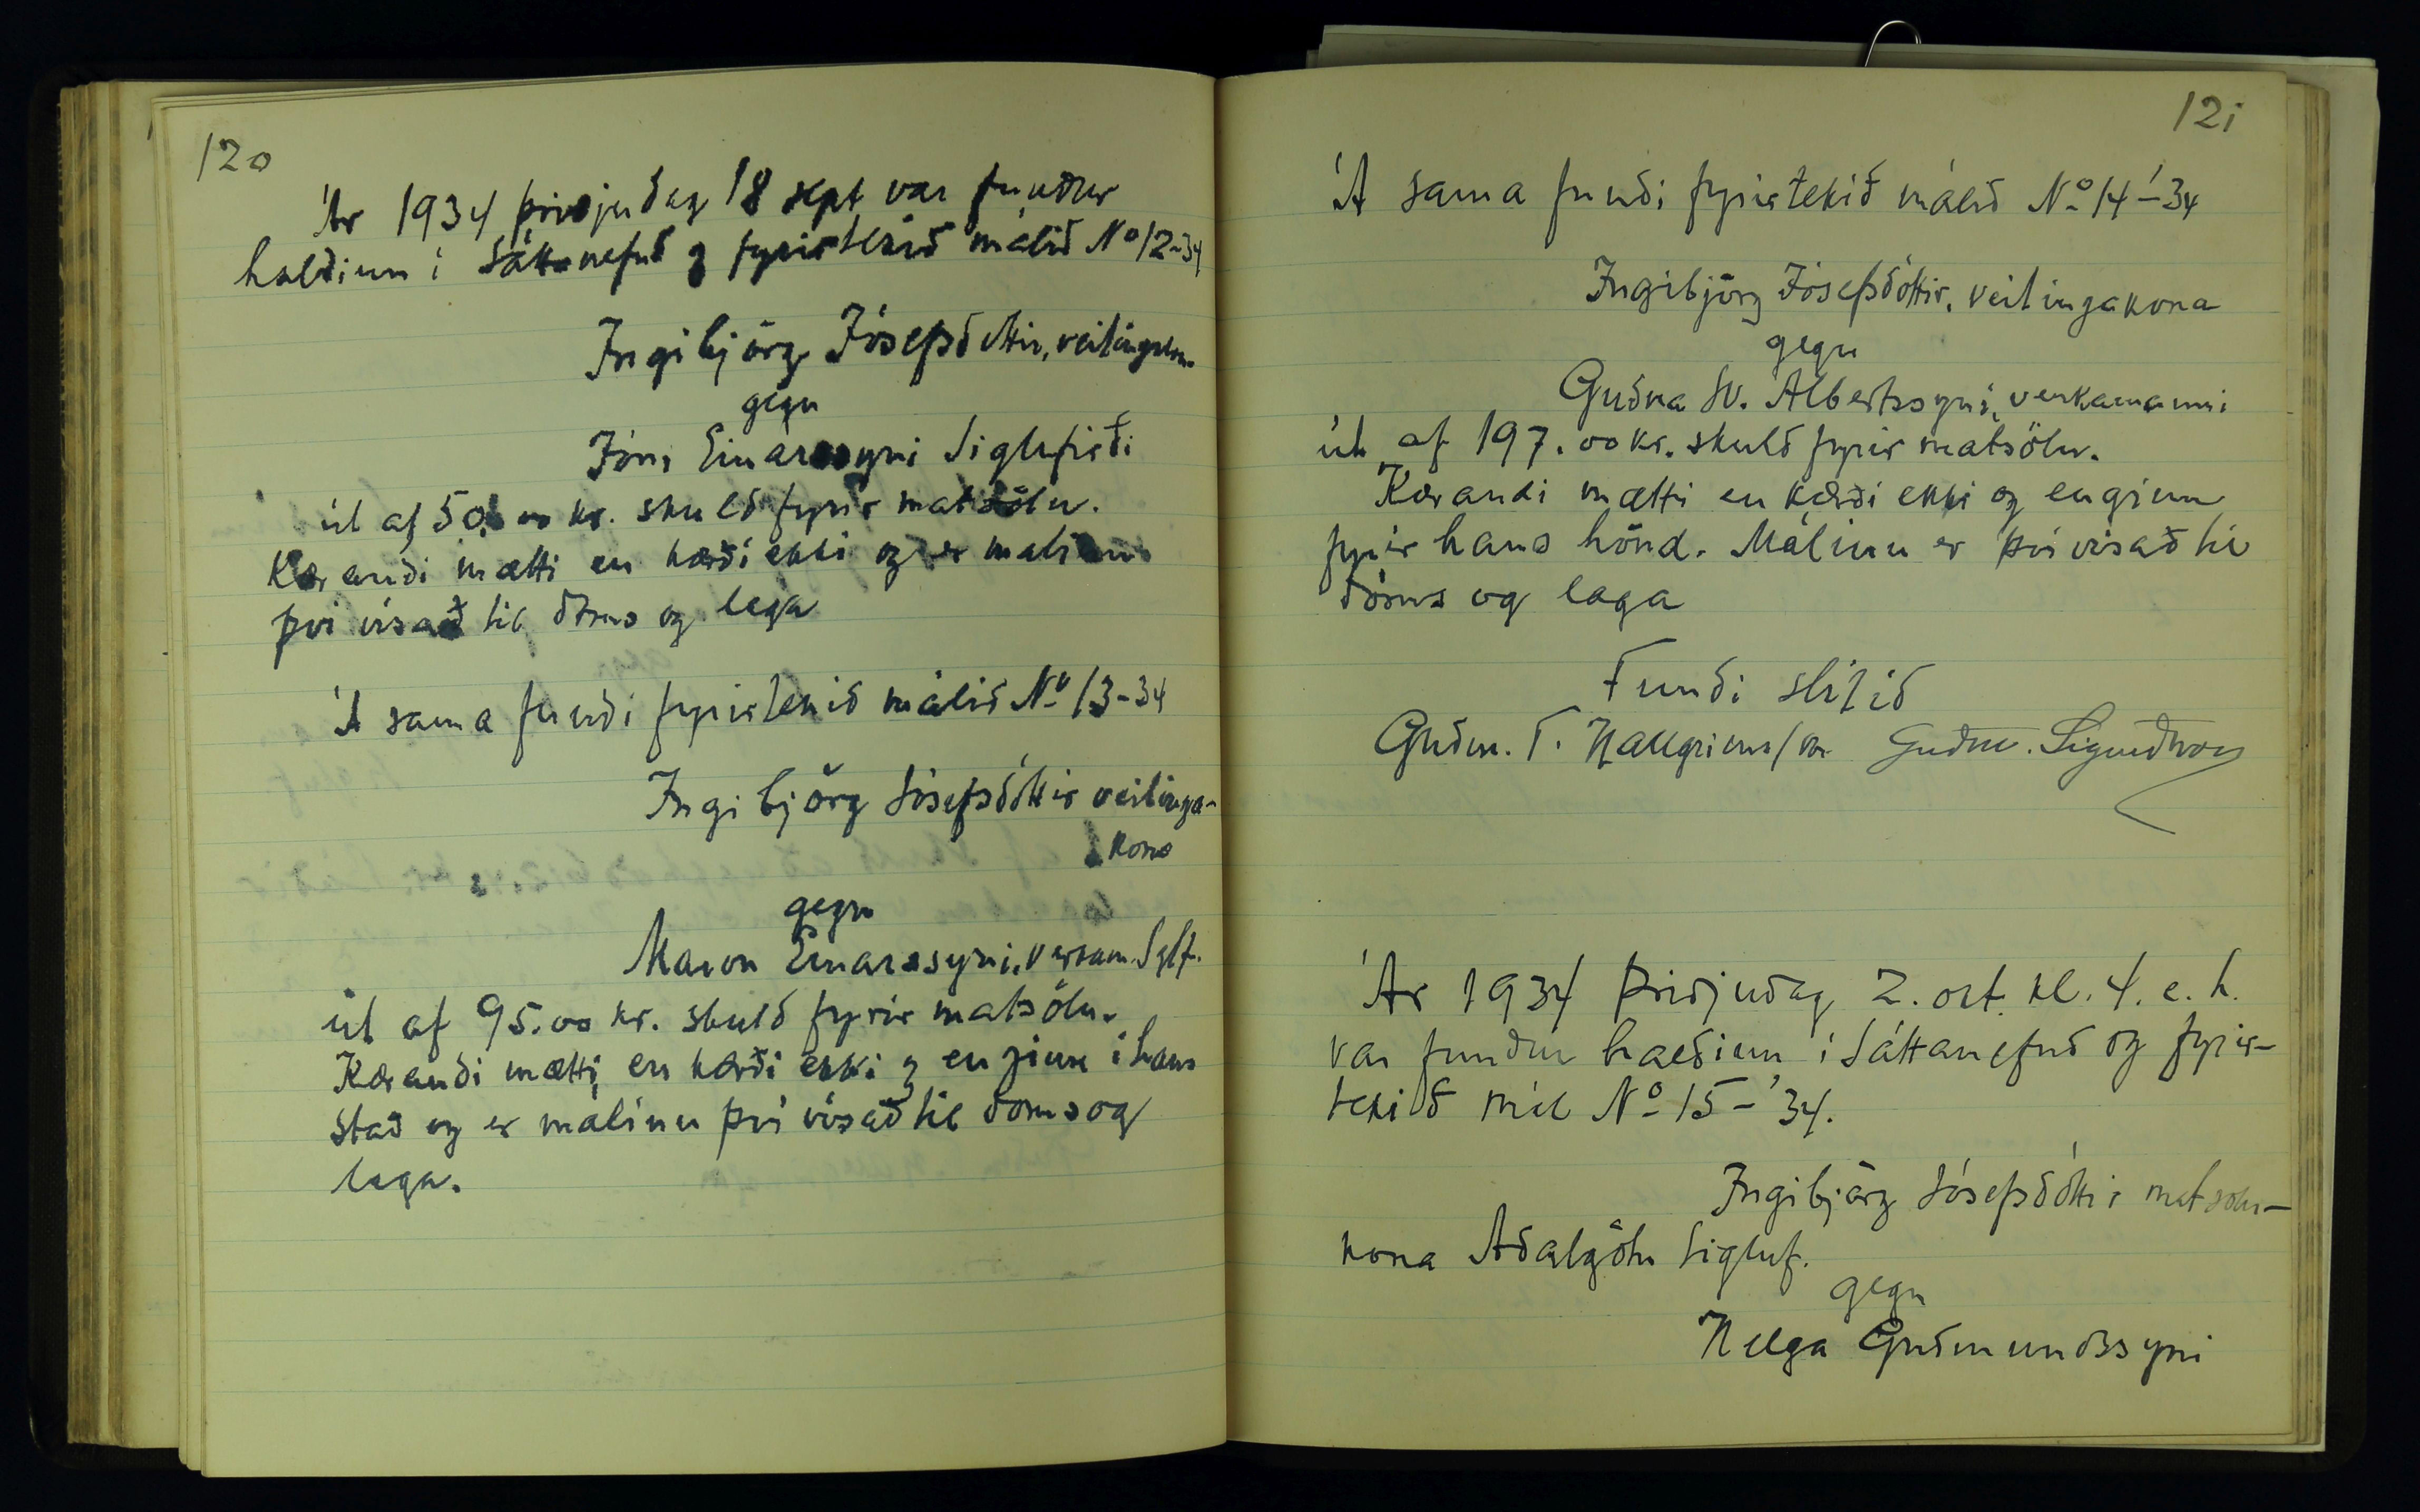 120
Ár 1934 þriðjudag 18 sept var fundur
haldinn í Sáttanefnd og fyrirtekið málið No 12-34
Ingibjörg Jósefsdóttir, veitingak.
gegn
Jóni Einarssyni Siglufirði
út af 50.00 kr. skuld fyrir matsölu.
Kærandi mætti en kærði ekki og er málinu
því vísað til dóms og laga
Á sama fundi fyrirtekið málið No 13-34
Ingibjörg Jósefsdóttir veitinga-
kona
gegn
Maron Einarssyni, verkam. Sglf.
út af 95.00 kr. skuld fyrir matsölu.
Kærandi mætti, en kærði ekki og enginn í hans
stað og er málinu því vísað til dóms og
laga.
121
Á sama fundi fyrirtekið málið No 14-'34
Ingibjörg Jósefsdóttir, veitingakona
gegn
Guðna Sv. Albertssyni, verkamanni
út af 197.00 kr. skuld fyrir matsölu.
Kærandi mætti en kærði ekki og enginn
fyrir hans hönd. Málinu er því vísað til
dóms og laga
Fundi slitið
Guðm. T. Hallgrímsson Guðm. Sigurðsson
Ár 1934 þriðjudag 2. okt. kl. 4. e. h.
var fundur haldinn í Sáttanefnd og fyrir-
tekið mál No 15-'34.
Ingibjörg Jósefsdóttir matsölu-
kona Aðalgötu Sigluf.
gegn
Helga Guðmundssyni